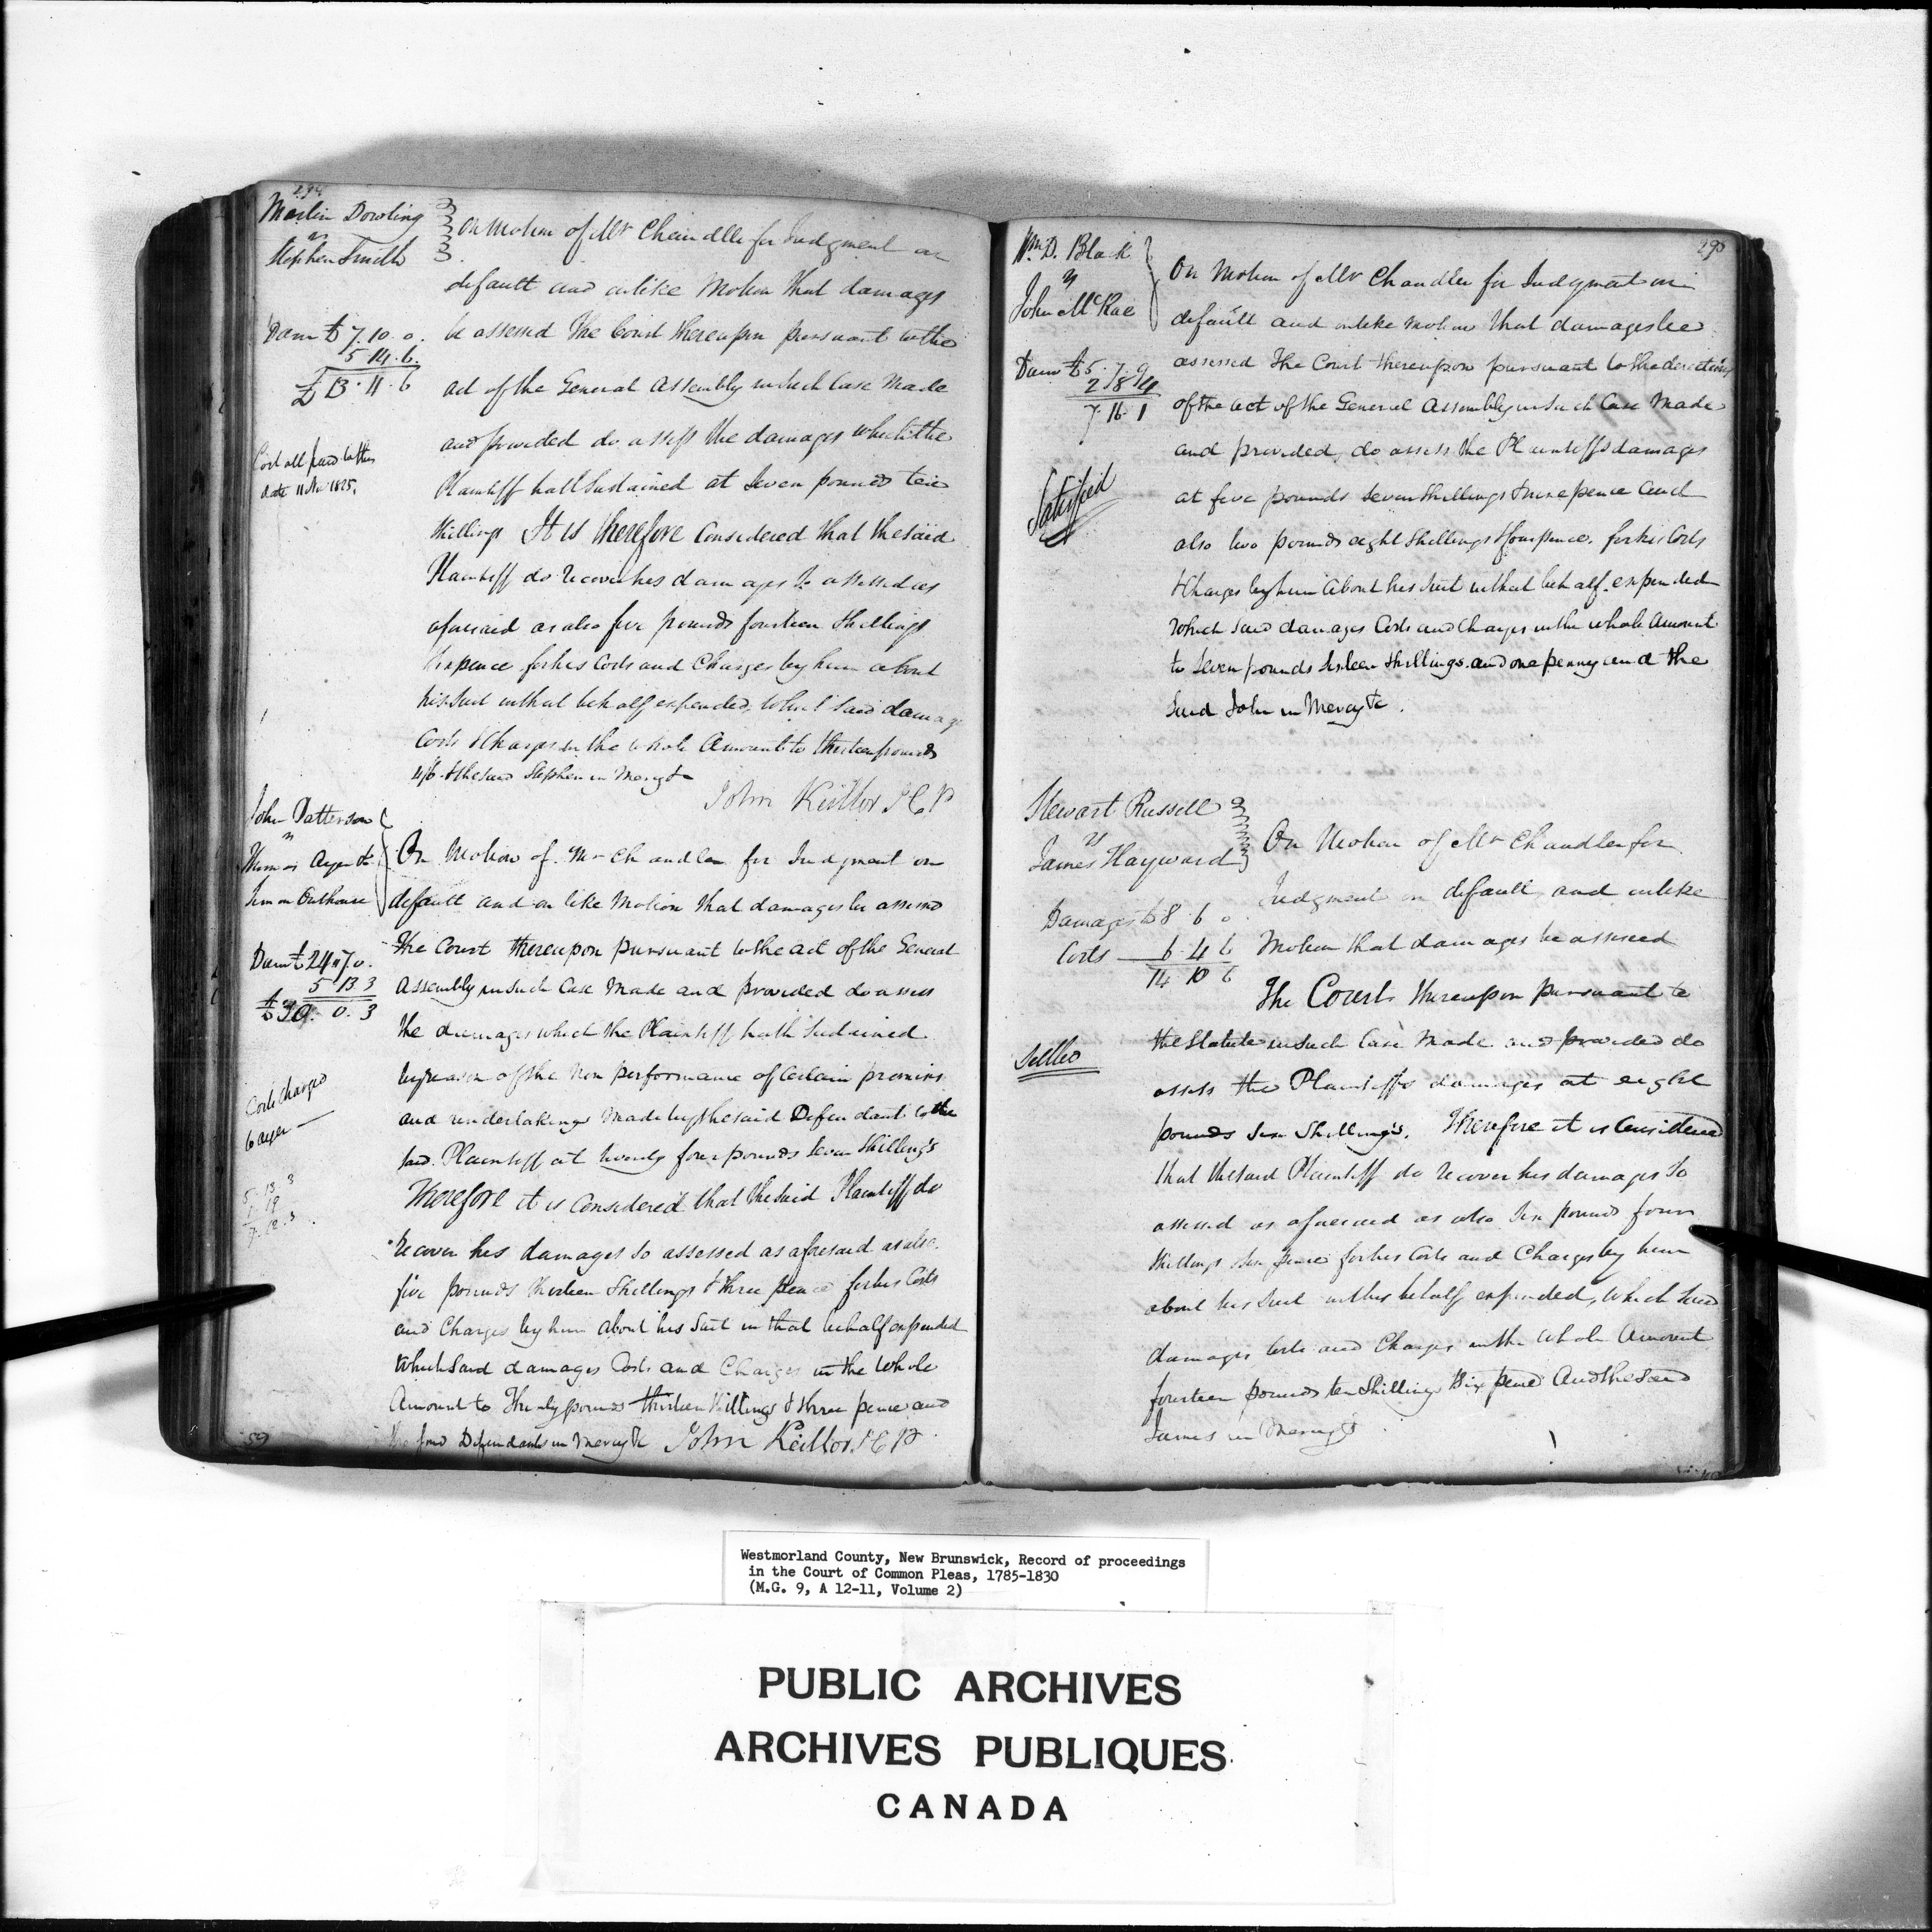 294
Martin Dowling
vs
Stephen Smith
On Motion of Mr Chandler for Judgment on
default and on like Motion that damages
Dam £7.10.0.
5.14.6.
£13.11.6
be assessed The Court thereupon pursuant to the
act of the General Assembly in such Case Made
and provided do assess the damages which the
Cost all paid to this
date 11 1825.
Plaintiff hath Sustained at Seven pounds ten
Shillings It is therefore Considered that the said
Plaintiff do recover his damages so assessed as
aforesaid as also five pounds fourteen Shillings
Sixpence for his Costs and Charges by him about
his Suit in that behalf expended, which said damages
Costs & Charges in the whole Amount to thirteen pounds
11/6 & the said Stephen in Mercy &c
John Keillor J C P
John Patterson
vs
Thomas Ayer &
Simon Outhouse
On Motion of Mr Chandler for Judgment on
default and on like Motion that damages be assessed
Dam £24"7.0.
5 13 3
£30. 0. 3
The Court thereupon pursuant to the act of the General
Assembly in such Case Made and provided do assess
the damages which the Plaintiff hath Sustained
Costs Charged
to ayer
by reason of the Non performance of Certain promises
and undertakings Made by the said Defendants to the
said Plaintiff at twenty four pounds Seven Shillings
5.13 3
1.19
7.12.3
Therefore it is Considered that the Said Plaintiff do
recover his damages so assessed as aforesaid as also
five pounds thirteen Shillings & three pence for his Costs
and Charges by him about his Suit in that behalf expended
Which Said damages Costs and Charges in the Whole
Amount to Thirty pounds thirteen Shillings & three pence and
the said Defendants in Mercy &c John Keillor J C P
59
295
Wm. D. Black
vs
John McRae
On Motion of Mr Chandler for Judgment on
default and on like motion that damages be
Dam £5.7.9
2 8 4
7.16.1
assessed The Court thereupon pursuant to the directions
of the act of the General Assembly in Such Case Made
and provided, do assess the Plaintiffs damages
Satisfied
at five pounds Seven Shillings & nine pence and
also two pounds eight Shillings & four pence. for his Costs
& Charges by him about his Suit in that behalf. expended
Which said damages Costs and Charges in the whole Amount
to Seven pounds Sixteen Shillings and one penny and the
Said John in Mercy &c.
Stewart Russell
vs
James Hayward
On Motion of Mr Chandler for
Judgment on default and on like
Damages £8.6.0
Costs 6.4 6
14 10 6
Motion that damages be assessed
The Court thereupon pursuant to
Settled
the Statute in such Case Made and provided do
assess the Plaintiffs damages at eight
pounds Six Shillings. Therefore it is Considered
that the said Plaintiff do recover his damages so
assessed as aforesaid as also Six pounds four
Shillings Six pence for his Costs and Charges by him
about his Suit in this behalf expended, Which Said
damages Costs and Charges in the Whole Amount
fourteen pounds ten Shillings & Six pence And the Said
James in Mercy &c
Westmorland County, New Brunswick, Record of proceedings
in the Court of Common Pleas, 1785-1830
(M.G. 9, A 12-11, Volume 2)
PUBLIC ARCHIVES
ARCHIVES PUBLIQUES
CANADA